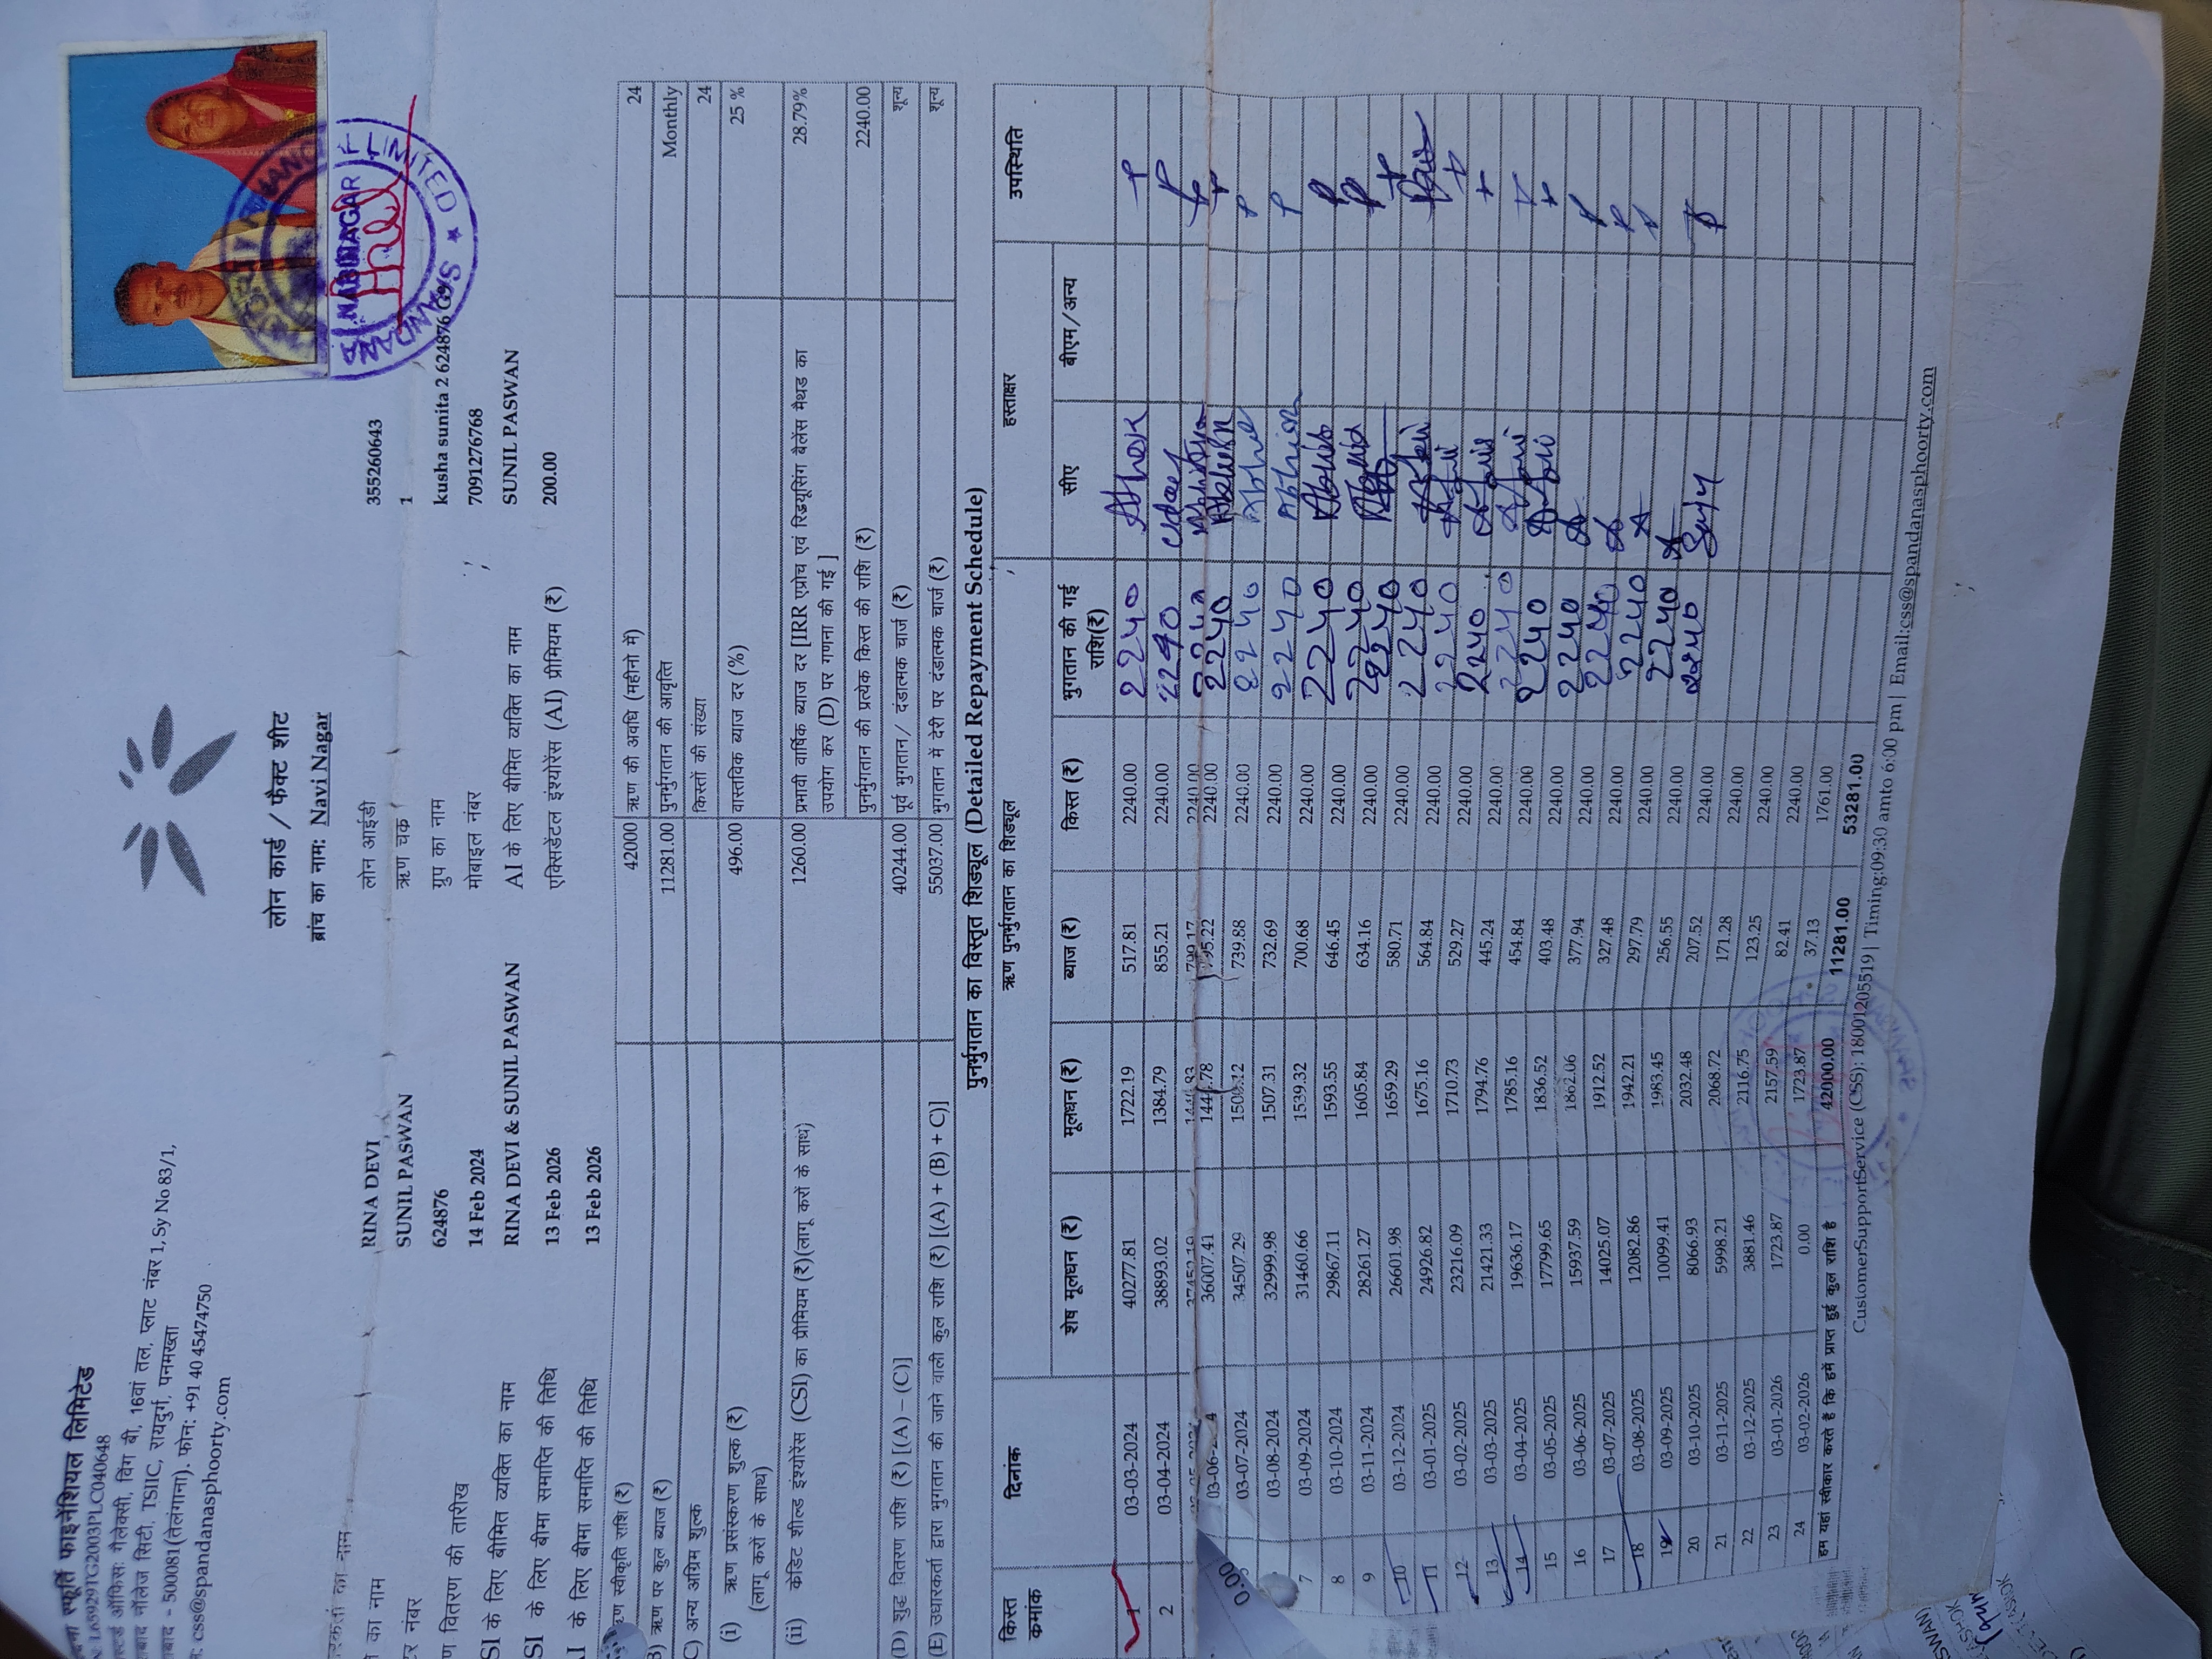 स्फूर्ति फाइनेंशियल लिमिटेड
ऑफिस: गैलेक्सी, विंग बी, 16वां तल, प्लाट नंबर 1, Sy No 83/1,
नॉलेज सिटी, TSIIC, रायदुर्ग, पनमख्ता
500081(तेलंगाना). फोन: +91 40 45474750
css@spandanasphoorty.com
लोन कार्ड / फैक्ट शीट
ब्रांच का नाम: Navi Nagar
का नाम RINA DEVI लोन आईडी 355260643
का नाम SUNIL PASWAN ऋण चक्र 1
नंबर 624876 ग्रुप का नाम kusha sunita 2 624876
वितरण की तारीख 14 Feb 2024 मोबाइल नंबर 7091276768
के लिए बीमित व्यक्ति का नाम RINA DEVI & SUNIL PASWAN AI के लिए बीमित व्यक्ति का नाम SUNIL PASWAN
के लिए बीमा समाप्ति की तिथि 13 Feb 2026 एक्सिडेंटल इंश्योरेंस (AI) प्रीमियम (₹) 200.00
के लिए बीमा समाप्ति की तिथि 13 Feb 2026
स्वीकृति राशि (₹) 42000 ऋण की अवधि (महीनो में) 24
ऋण पर कुल ब्याज (₹) 11281.00 पुनर्भुगतान की आवृत्ति Monthly
अन्य अग्रिम शुल्क किस्तों की संख्या 24
(i) ऋण प्रसंस्करण शुल्क (₹) 496.00 वास्तविक ब्याज दर (%) 25 %
(लागू करों के साथ)
(ii) क्रेडिट शील्ड इंश्योरेंस (CSI) का प्रीमियम (₹)(लागू करों के साथ) 1260.00 प्रभावी वार्षिक ब्याज दर [IRR एप्रोच एवं रिड्यूसिंग बैलेंस मैथड का 28.79%
उपयोग कर (D) पर गणना की गई ]
पुनर्भुगतान की प्रत्येक किस्त की राशि (₹) 2240.00
(D) शुद्ध वितरण राशि (₹) [(A) – (C)] 40244.00 पूर्व भुगतान/ दंडात्मक चार्ज (₹) शून्य
(E) उधारकर्ता द्वारा भुगतान की जाने वाली कुल राशि (₹) [(A) + (B) + C)] 55037.00 भुगतान में देरी पर दंडात्मक चार्ज (₹) शून्य
पुनर्भुगतान का विस्तृत शिड्यूल (Detailed Repayment Schedule)
ऋण पुनर्भुगतान का शिड्यूल हस्ताक्षर
किस्त क्रमांक दिनांक शेष मूलधन (₹) मूलधन (₹) ब्याज (₹) किस्त (₹) भुगतान की गई राशि(₹) सीए बीएम/अन्य उपस्थिति
1 03-03-2024 40277.81 1722.19 517.81 2240.00 2240 Ashok P
2 03-04-2024 38893.02 1384.79 855.21 2240.00 2240 Uday P
2240.00 2240
36007.41 2240.00 2240
03-07-2024 34507.29 739.88 2240.00 2240 P
03-08-2024 32999.98 1507.31 732.69 2240.00 2240 P
7 03-09-2024 31460.66 1539.32 700.68 2240.00 2240 P
8 03-10-2024 29867.11 1593.55 646.45 2240.00 2240 P
9 03-11-2024 28261.27 1605.84 634.16 2240.00 2240
10 03-12-2024 26601.98 1659.29 580.71 2240.00 2240
11 03-01-2025 24926.82 1675.16 564.84 2240.00 2240
12 03-02-2025 23216.09 1710.73 529.27 2240.00 2240
13 03-03-2025 21421.33 1794.76 445.24 2240.00 2240
14 03-04-2025 19636.17 1785.16 454.84 2240.00 2240
15 03-05-2025 17799.65 1836.52 403.48 2240.00 2240
16 03-06-2025 15937.59 1862.06 377.94 2240.00 2240
17 03-07-2025 14025.07 1912.52 327.48 2240.00 2240
18 03-08-2025 12082.86 1942.21 297.79 2240.00 2240
19 03-09-2025 10099.41 1983.45 256.55 2240.00 2240
20 03-10-2025 8066.93 2032.48 207.52 2240.00
21 03-11-2025 5998.21 2068.72 171.28 2240.00
22 03-12-2025 3881.46 2116.75 123.25 2240.00
23 03-01-2026 1723.87 2157.59 82.41 2240.00
24 03-02-2026 0.00 1723.87 37.13 1761.00
हम यहां स्वीकार करते हैं कि हमें प्राप्त हुई कुल राशि है 42000.00 11281.00 53281.00
CustomerSupportService (CSS): 18001205519 | Timing:09:30 amto 6:00 pm | Email:css@spandanasphoorty.com